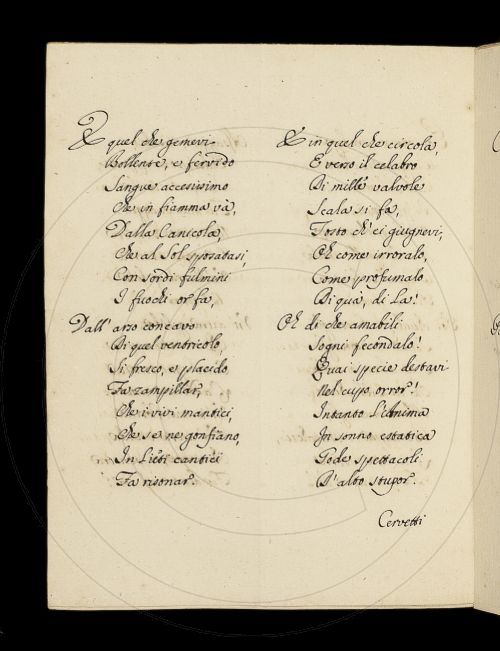 E quel che gemevi
Bollente, e fervido
Sangue accesissimo
Che in fiamma và,
Dalla Canicola,
Che al Sol sposatasi,
Con sordi fulmini
I fuochi or fa,
Dall' arso concavo
Di quel ventricolo,
Si fresco, e placido
Fa zampillar,
Che i vivi mantici,
Che se ne gonfiano,
In lieti cantici
Fa risonar.
E in quel che circola,
E verso il celabro
Di mille valvole
Scala si fa,
Tosto ch' ei giugnevi,
Oh come irroralo,
Come profumalo
Di quà, di là!
Oh di che amabili
Sogni fecondalo!
Quai specie destavi
Nel cupo orror!
Intanto l'Anima
In sonno estatica
Gode spettacoli
D' alto stupor.
Cervetti